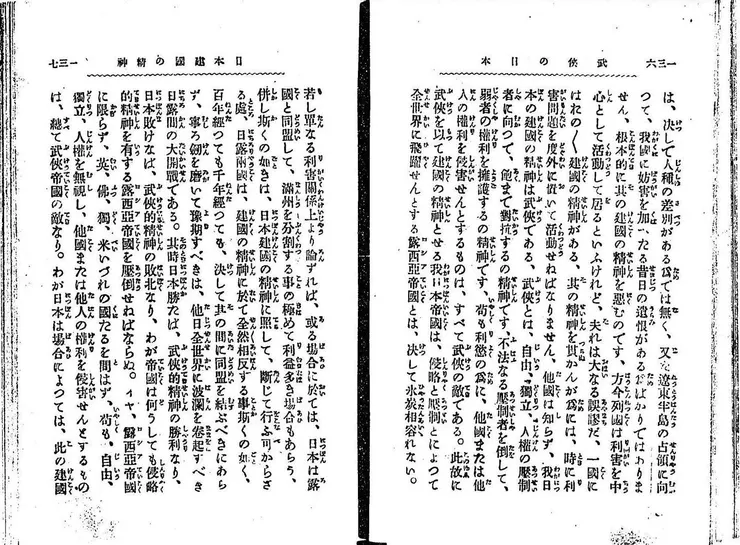 一三六　武俠の日本
は、決して人種の差別がある爲では無く、又た遼東半島の占領に向
つて、我國に妨害を加へたる昔日の遺恨があるばかりではありま
せん、根本的に其の建國の精神を惡むのです、方今列國は利害を中
心として活動して居るといふけれど、夫れは大なる誤謬だ、一國に
はれの〱建國の精神がある、其の精神を貫かんが爲には、時に利
害問題を度外に置いて活動せねばなりません、他國は知らず、我日
本の建國の精神は武俠である。武俠とは、自由、獨立、人權の壓制
者に向つて、飽まで對抗するの精神です、不法なる壓制者を倒して、
弱者の權利を擁護するの精神です、苟も利慾の爲に、他國または他
人の權利を侵害せんとするものは、すべて武俠の敵である。此故に
武俠を以て建國の精神とせる我日本帝國は、侵略と壓制とによつて
全世界に飛躍せんとする露西亞帝國とは、決して氷炭相容れない。
日本建國の精神　一三七
若し單なる利害關係上より論ずれば、或る場合に於ては、日本は露
國と同盟して、滿州を分割する事の極めて利益多き場合もあらう、
併し斯くの如きは、日本建國の精神に照して、斷じて行ふ可からざ
る處、日露兩國は、建國の精神に於て全然相反する事斯くの如く、
百年經つても千年經つても、決して其の間に同盟を結ぶべきにあら
ず、寧ろ劒を磨いて豫期すべきは、他日全世界に波瀾を卷起すべき
日露間の大開戰である。其時日本勝たば、武俠的精神の勝利なり、
日本敗けなば、武俠的精神の敗北なり、わが帝國は何うしても侵略
的精神を有する露西亞帝國を壓倒せねばならぬ。イヤ、露西亞帝國
に限らず、英、佛、獨、米いづれの國たるを問はず、苟も、自由、
獨立、人權を無視し、他國または他人の權利を侵害せんとするもの
は、總て武俠帝國の敵なり。わが日本は場合によつては、此の建國